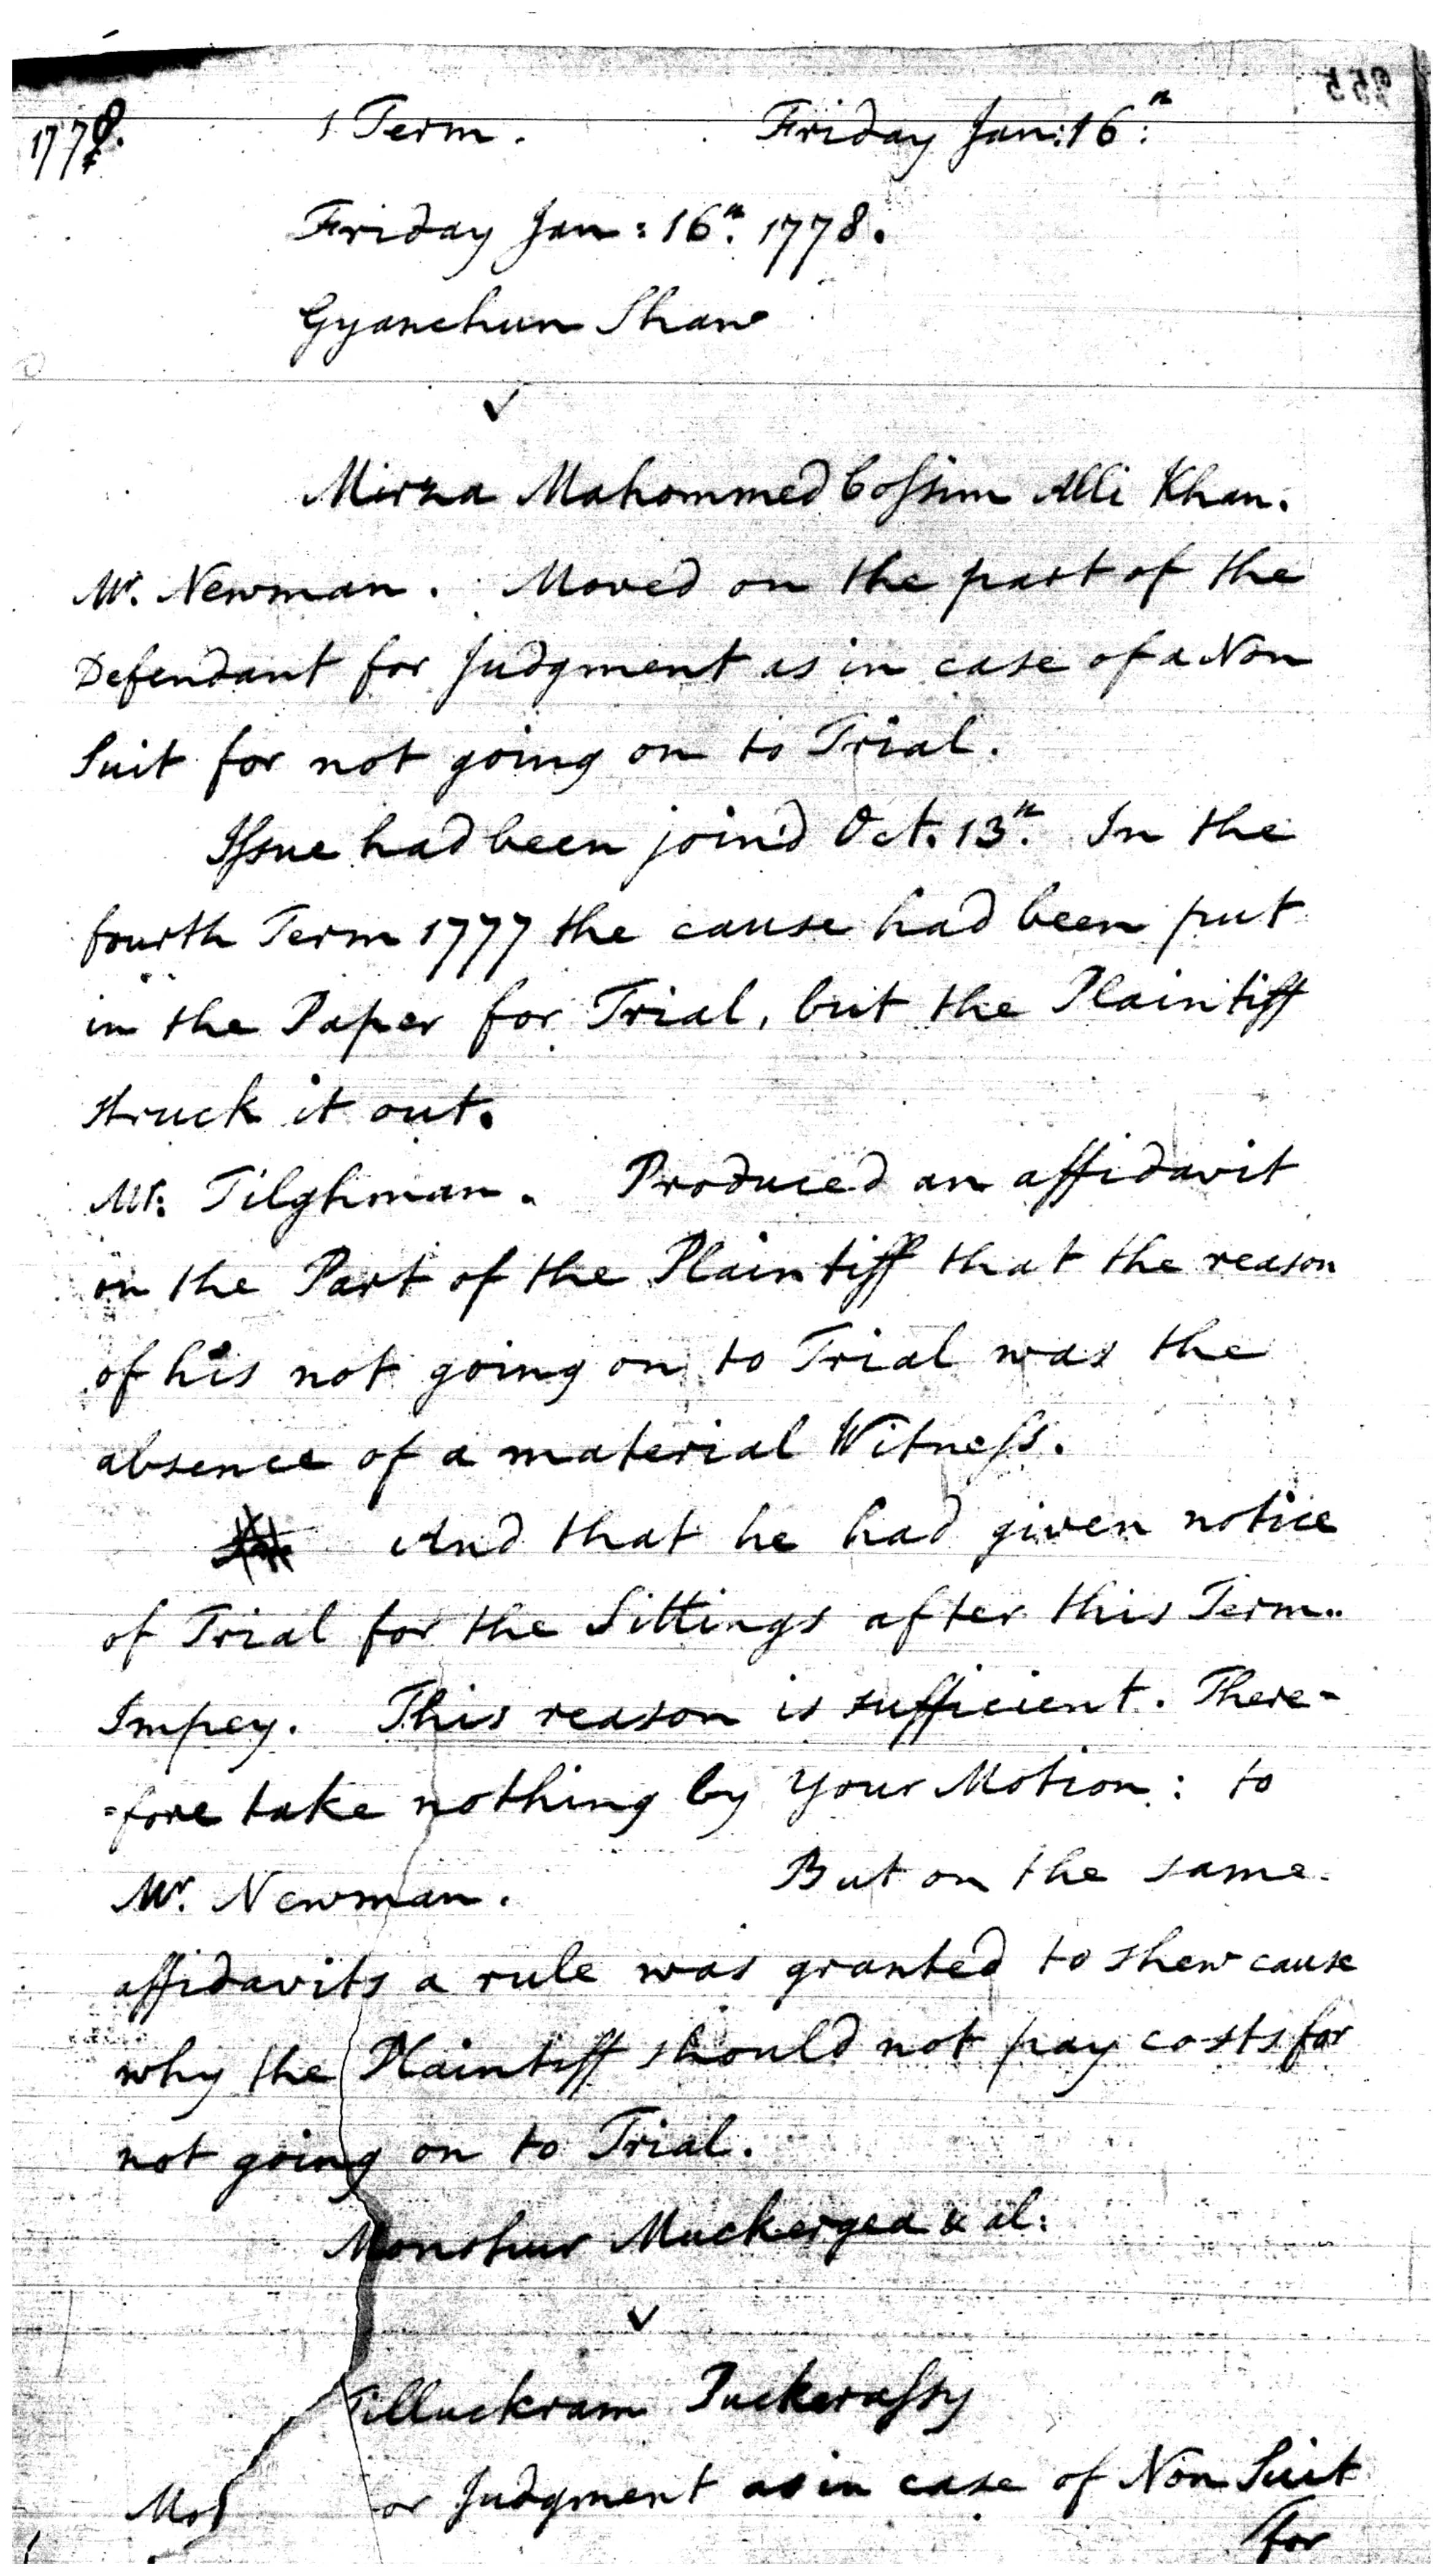 1778. 1 Term. Friday Jan: 16th:
Friday Jan: 16th. 1778.
Gyanchun Shaw
v
Mirza Mahommed Cossim Alli Khan.
Mr. Newman. Moved on the part of the
Defendant for Judgment as in case of a Non
Suit for not going on to Trial.
Issue had been join'd Oct. 13th. In the
fourth Term 1777 the cause had been put
in the Paper for Trial, but the Plaintiff
struck it out.
Mr: Tilghman. Produced an affidavit
on the Part of the Plaintiff that the reason
of his not going on to Trial was the
absence of a material Witness.
And that he had given notice
of Trial for the Sittings after this Term.
Impey. This reason is sufficient. There-
=fore take nothing by your Motion: to
Mr. Newman. But on the same
affidavits a rule was granted to shew cause
why the Plaintiff should not pay costs for
not going on to Trial.
Monohur Muckergea & al:
v
Tilluckram Puckerassy
or Judgment as in case of Non Suit
for